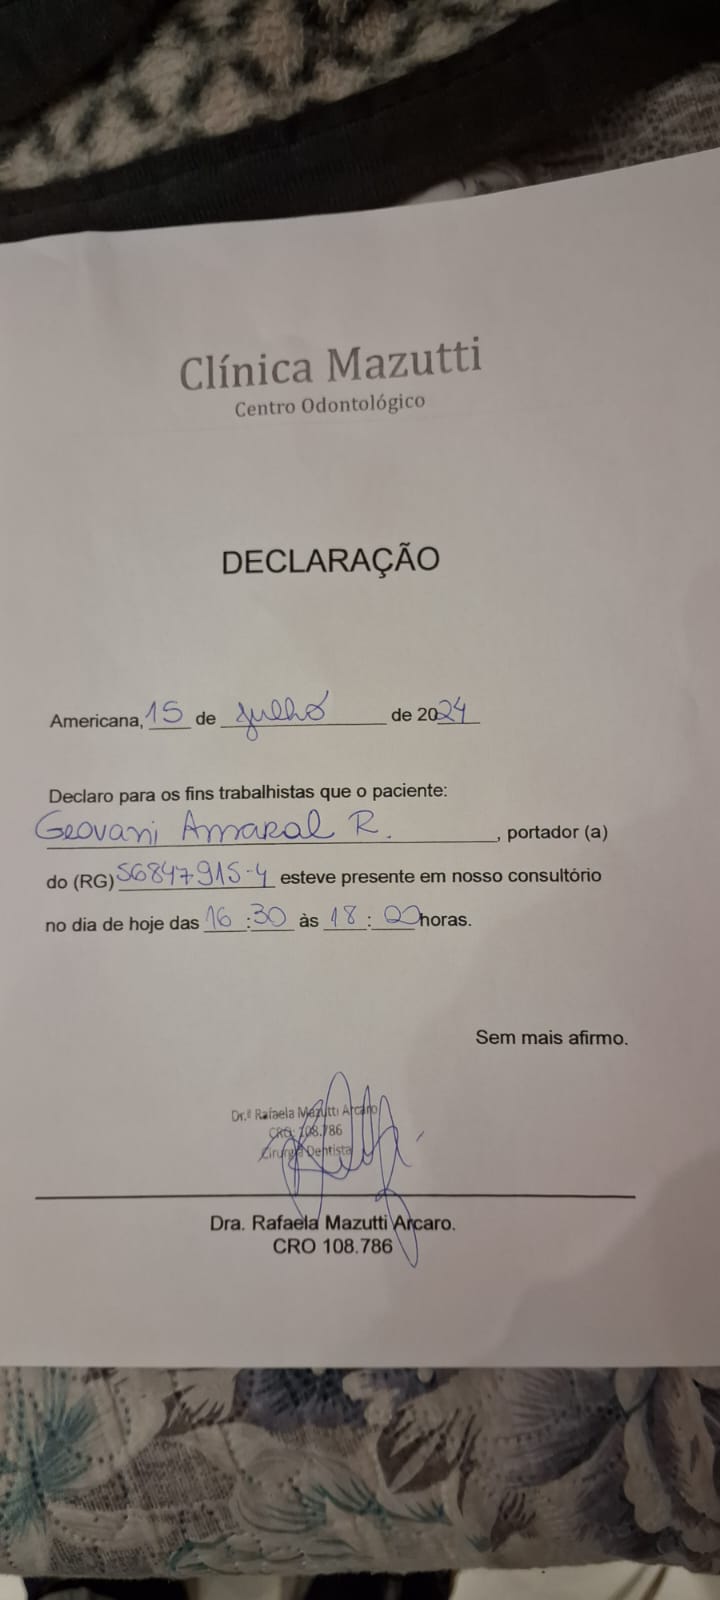 Clínica Mazutti
Centro Odontológico
DECLARAÇÃO
Americana, 15 de julho de 2024
Declaro para os fins trabalhistas que o paciente:
Geovani Amaral R. , portador (a)
do (RG) 56847915-4 esteve presente em nosso consultório
no dia de hoje das 16:30 às 18:00 horas.
Sem mais afirmo.
Dr.ª Rafaela Mazutti Arcaro
CRO 108.786
Cirurgiã Dentista
Dra. Rafaela Mazutti Arcaro.
CRO 108.786